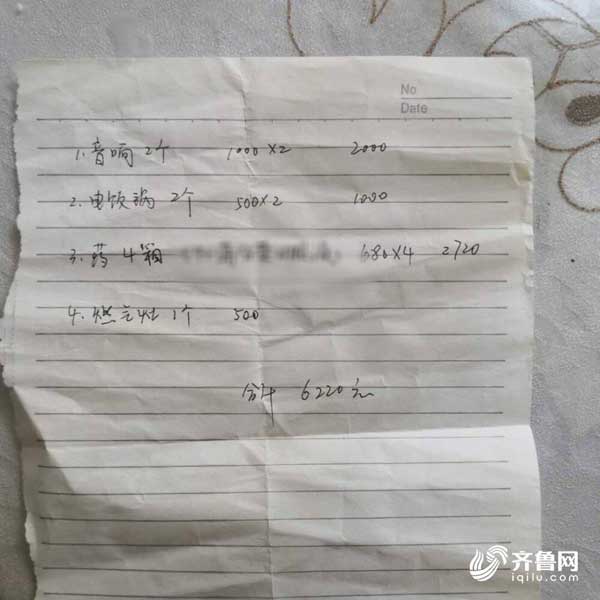 No
Date
1. 音响 2个 1000×2 2000
2. 电饭锅 2个 500×2 1000
3. 药 4箱 680×4 2720
4. 燃气灶 1个 500
合计 6220元
齐鲁网
iqilu.com